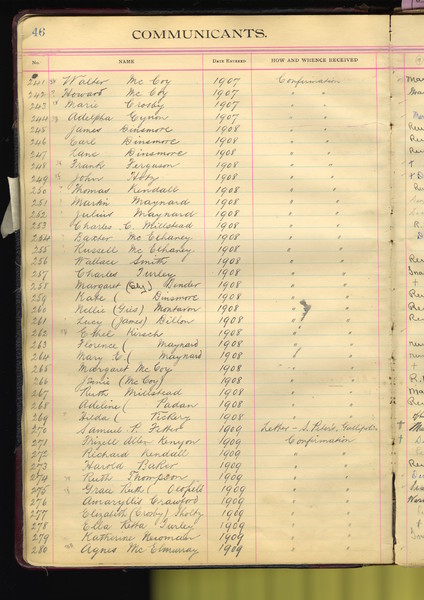 46 COMMUNICANTS.
No. NAME DATE ENTERED HOW AND WHENCE RECEIVED
241 Walter McCoy 1907 Confirmation
242 Howard McCoy 1907 " "
243 Marie Crosby 1907 " "
244 Adelpha Cynon 1907 " "
245 James Dinsmore 1908 " "
246 Earl Dinsmore 1908 " "
247 Lane Dinsmore 1908 " "
248 Frank Ferguson 1908 " "
249 John 1908 " "
250 Thomas Kendall 1908 " "
251 Martin Maynard 1908 " "
252 Julius Maynard 1908 " "
253 Charles C. Millstead 1908 " "
254 Baxter McElhaney 1908 " "
255 Russell McElhaney 1908 " "
256 Wallace Smith 1908 " "
257 Charles Turley 1908 " "
258 Margaret ( ) 1908 " "
259 Kate ( Dinsmore 1908 " "
260 Nellie (Gies) Montavon 1908 " "
261 Lucy (James) Dillon 1908 " "
262 Ethel Kirsch 1908 " "
263 Florence ( Maynard 1908 " "
264 Mary E. ( Maynard 1908 " "
265 Margaret McCoy 1908 " "
266 (McCoy) 1908 " "
267 Ruth Millstead 1908 " "
268 Adeline ( Padan 1908 " "
269 Hilda ( Vickery 1908 " "
270 Samuel P. 1909 Letter - S. Peter's, Gallipolis
271 Frizell Allen Kenyon 1909 Confirmation
272 Richard Kendall 1909 " "
273 Harold Baker 1909 " "
274 Ruth Thompson 1909 " "
275 Grace Ruth ( 1909 " "
276 Amaryllis Crawford 1909 " "
277 Elizabeth (Crosby) 1909 " "
278 Ella Retta Turley 1909 " "
279 Katherine 1909 " "
280 Agnes McElmurray 1909 " "